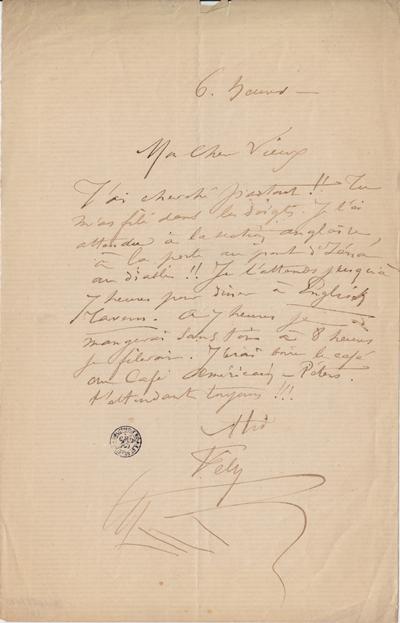 6. heures —
Mon cher Vieux
J'ai cherché partout !! Tu
m'as filé dans les doigts. Je t'ai
attendu à la section anglaise,
à la porte au pont d'Iéna
au diable !! Je t'attends jusqu'à
7 heures pour diner à English
Tavern. À 7 heures je
mangerai sans toi à 8 heures
je filerai. J'irai boire le café
au Café Américain - Péters.
t'attendant toujours !!!